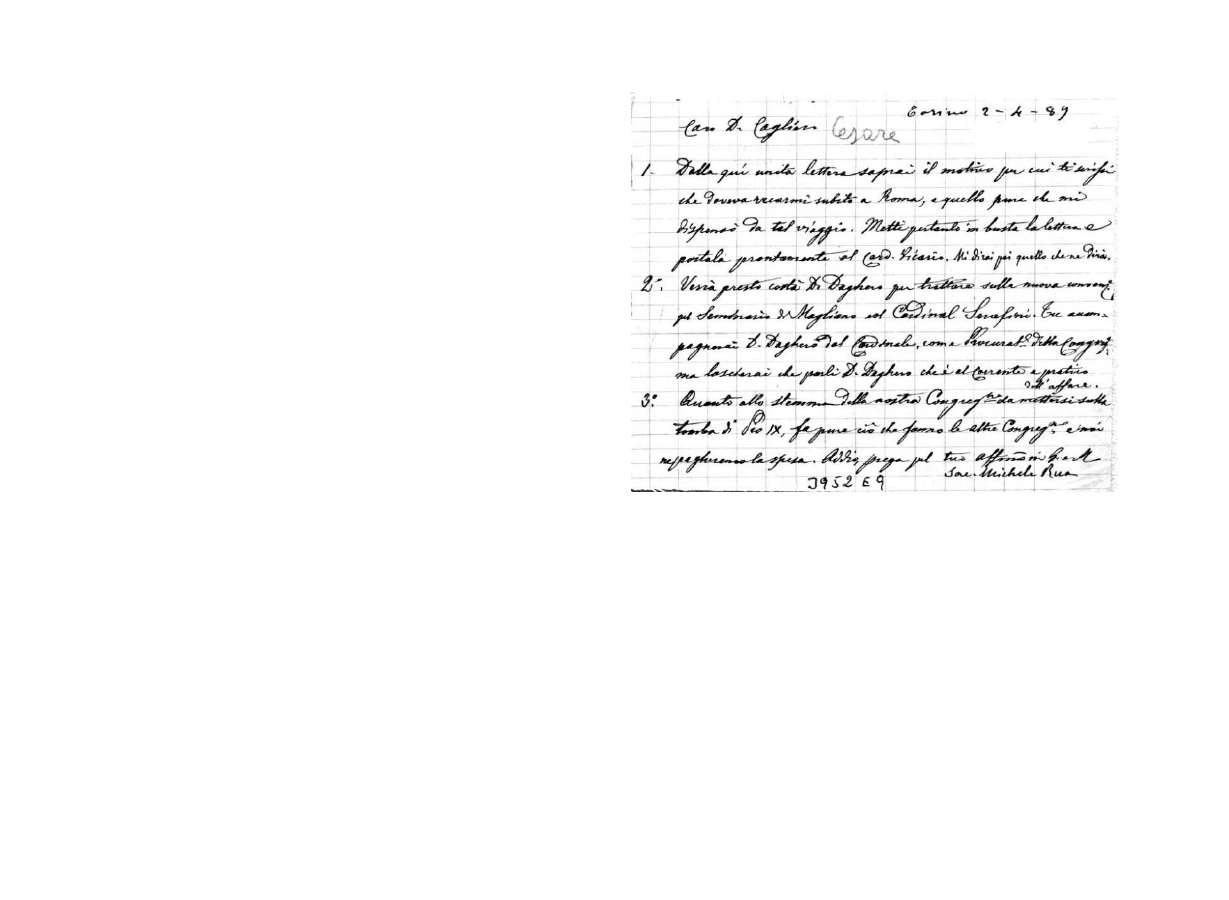 Torino 2-4-89
Caro D. Cagliero Cesare
1. Dalla qui unita lettera saprai il motivo per cui ti scrissi
che doveva recarmi subito a Roma, e quello pure che mi
dispensò da tal viaggio. Metti pertanto in busta la lettera e
portala prontamente al Card. Vicario. Mi dirai poi quello che ne dirà.
2°. Verrà presto costà D. Daghero per trattare sulla nuova convenz.
pel Seminario di Magliano col Cardinal Serafini. Tu accom=
pagnerai D. Daghero dal Cardinale, come Procurat.e della Congreg.
ma lascierai che parli D. Daghero che è al corrente e pratico
dell'affare.
3° Quanto allo stemma della nostra Congreg.ne da mettersi sulla
tomba di Pio IX, fa pure ciò che fanno le altre Congreg.ni e noi
ne pagheremo la spesa. Addio, prega pel tuo affmo in G. e M.
Sac. Michele Rua
3952 E 9